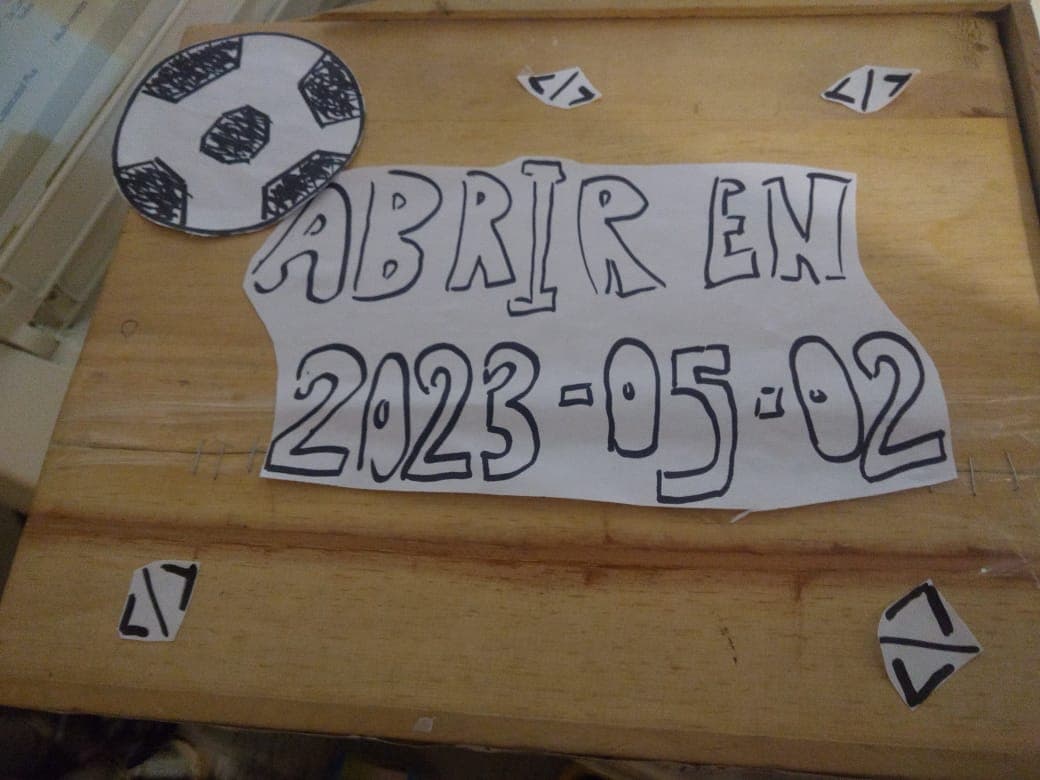 </>
</>
ABRIR EN
2023-05-02
</>
</>